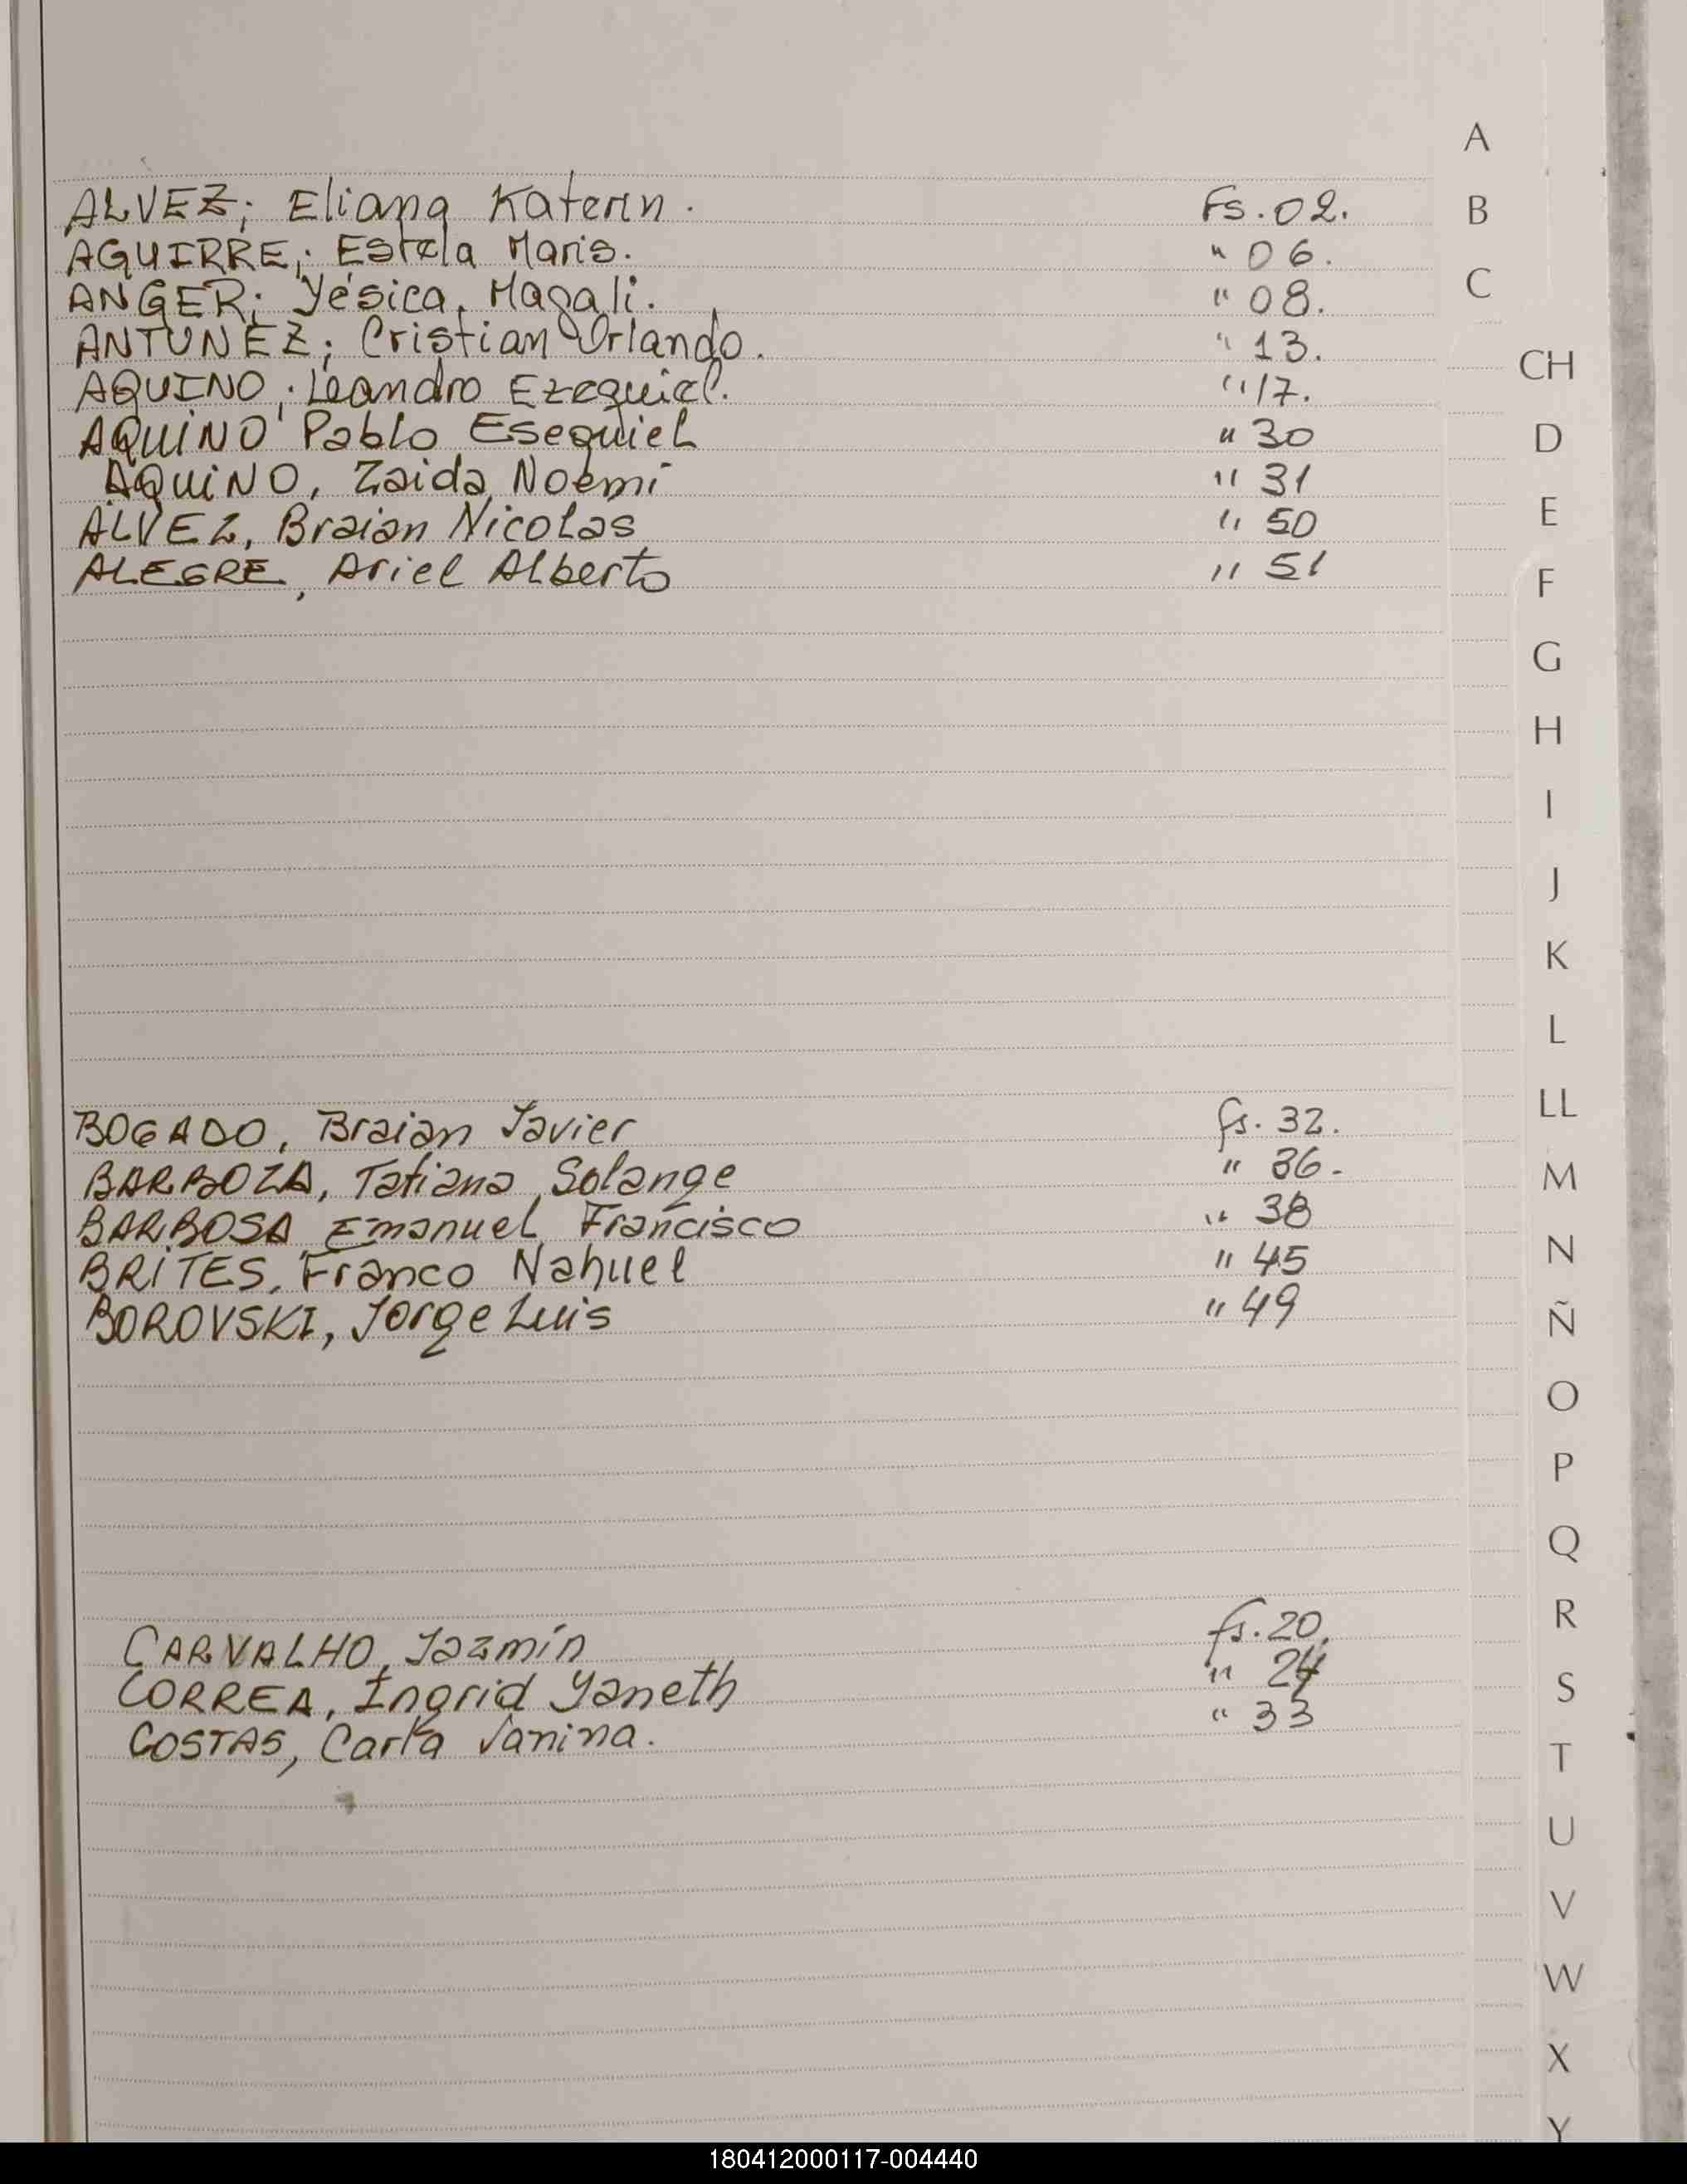 A
ALVEZ; Eliana Katerin. Fs.02. B
AGUIRRE; Estela Maris. " 06.
ANGER; Yésica Magali. " 08. C
ANTUNEZ; Cristian Orlando. " 13.
CH
AQUINO; Leandro Ezequiel. " 17.
AQUINO Pablo Esequiel " 30 D
AQUINO, Zaida Noemi " 31
E
ALVEZ, Braian Nicolas " 50
ALEGRE, Ariel Alberto " 51
F
G
H
I
J
K
L
LL
BOGADO, Braian Javier fs. 32.
BARBOZA, Tatiana Solange " 36. M
BARBOSA, Emanuel Francisco " 38
BRITES, Franco Nahuel " 45 N
BOROVSKI, Jorge Luis " 49
Ñ
O
P
Q
R
CARVALHO, Jazmín fs. 20.
CORREA, Ingrid Yaneth " 24 S
COSTAS, Carla Vanina. " 33
T
U
V
W
X
Y
180412000117-004440